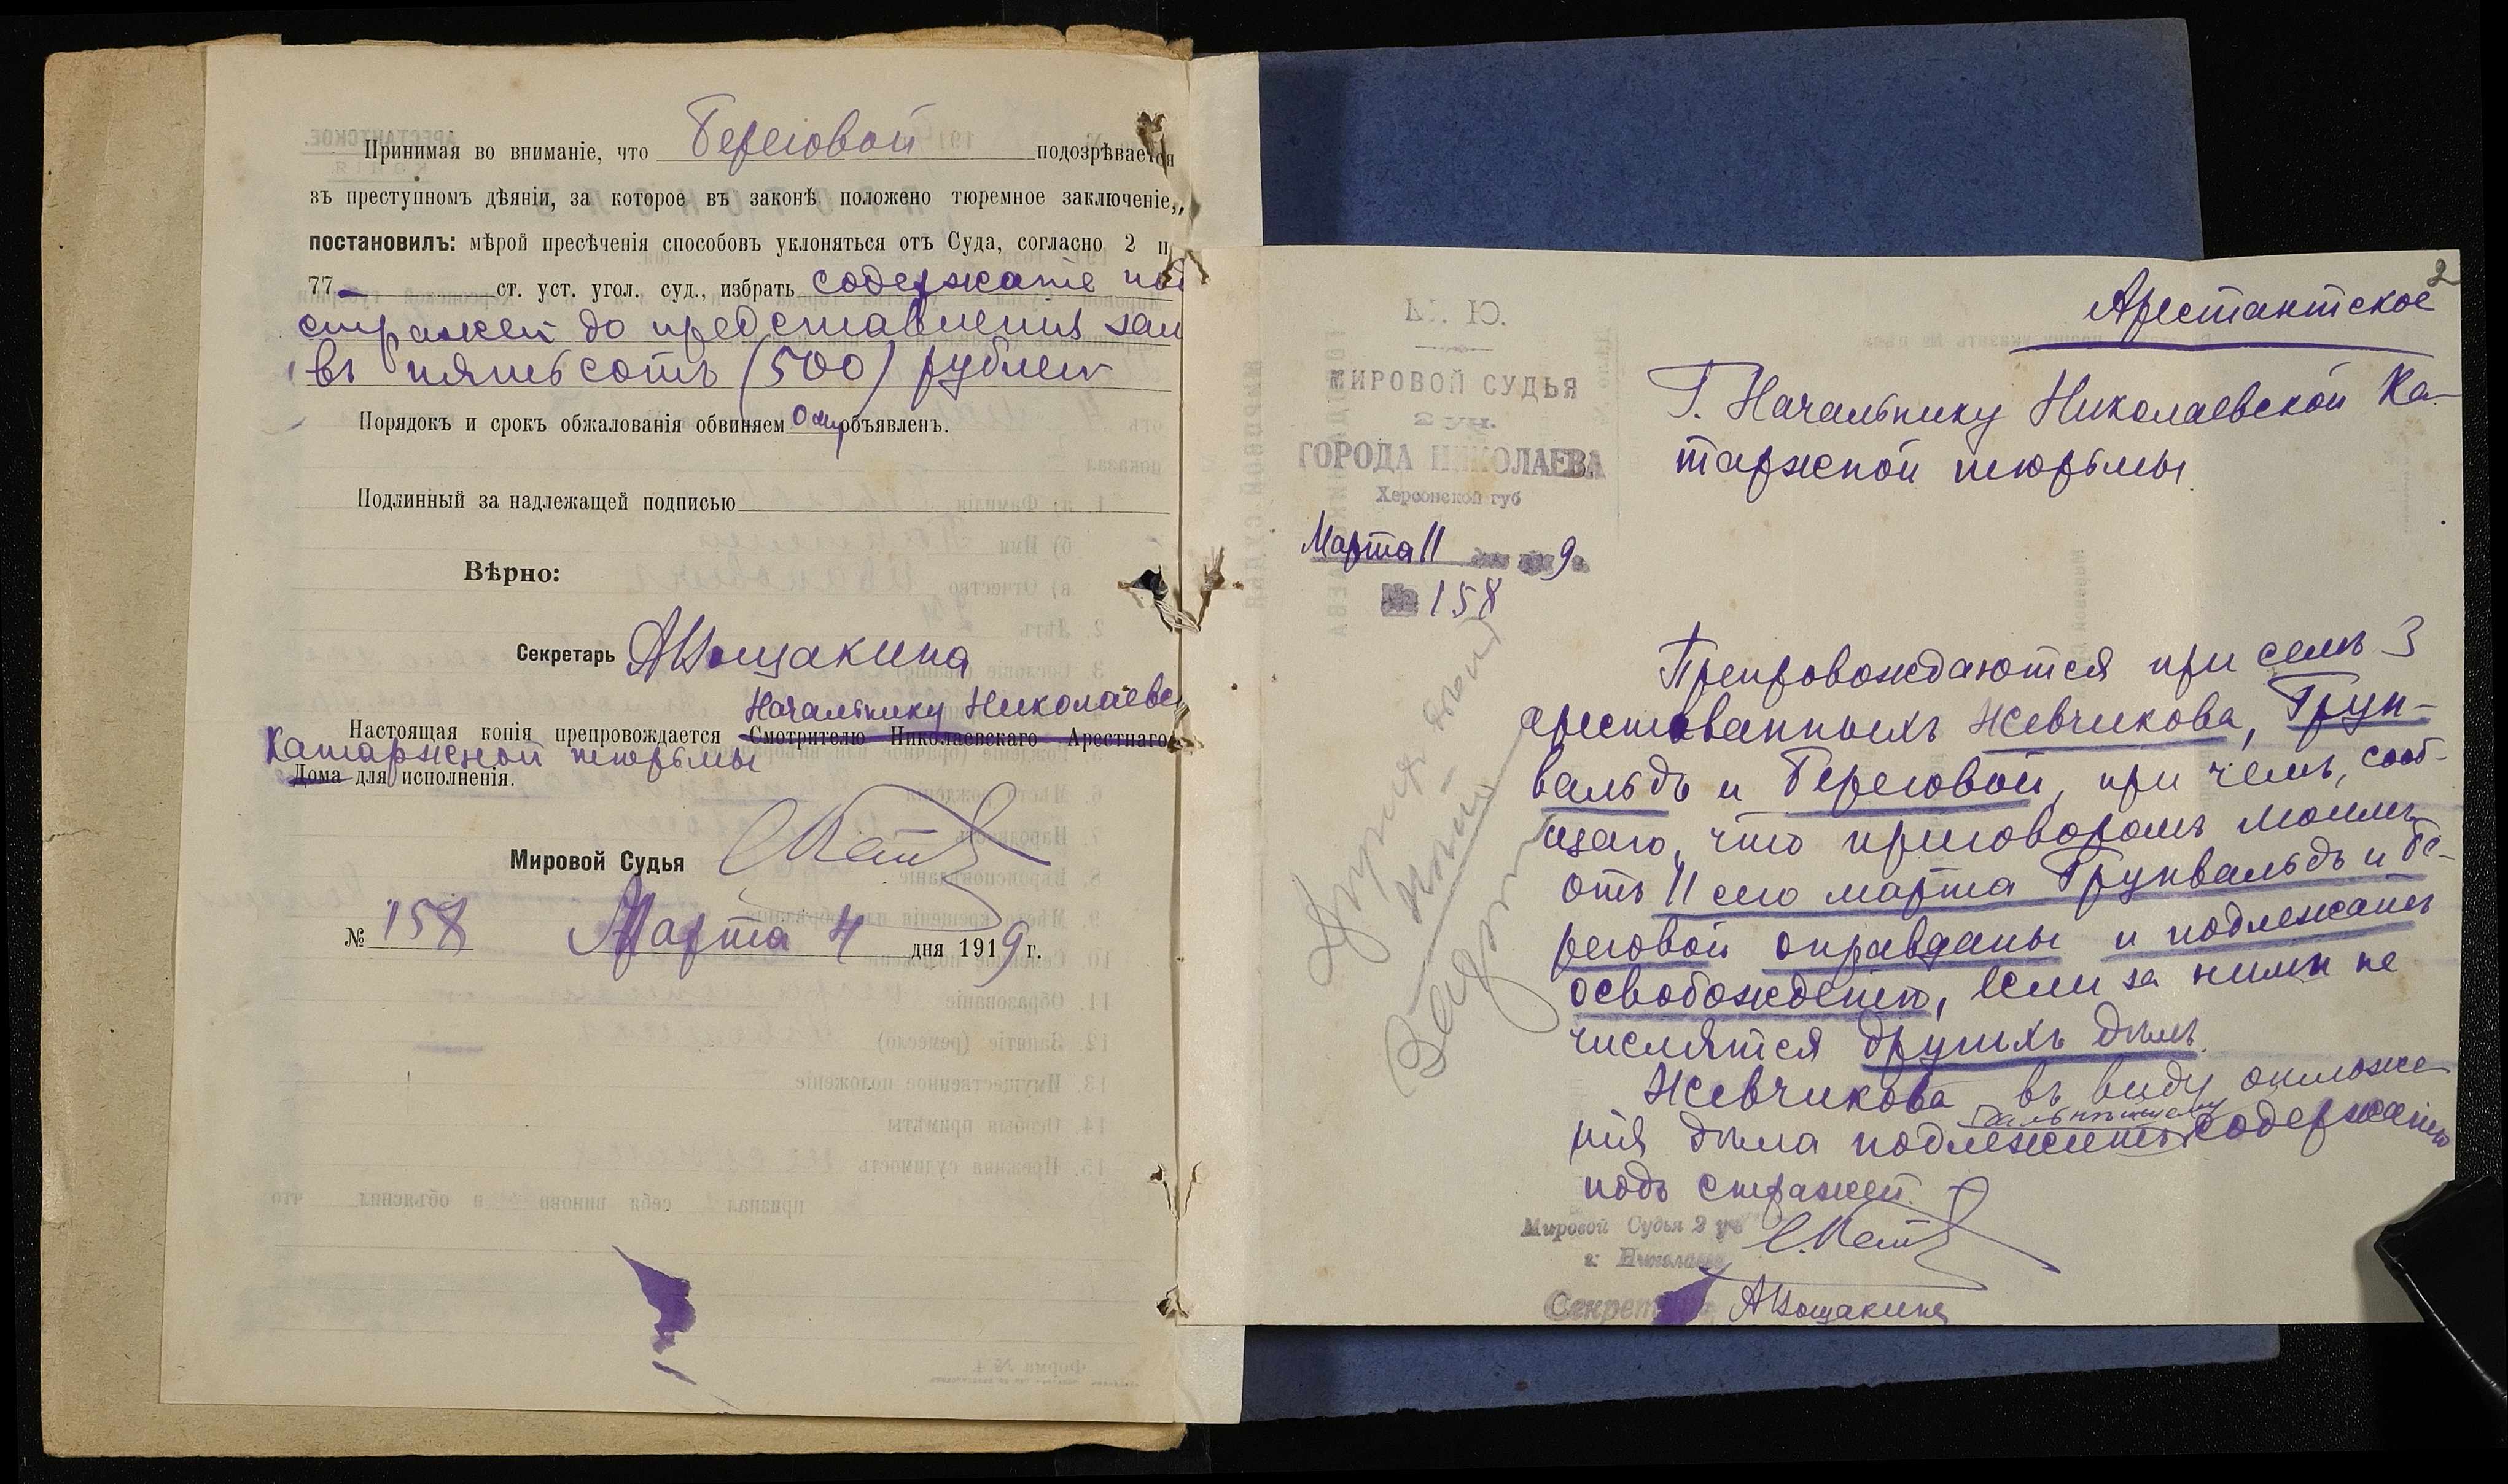 Принимая во вниманіе, что Береговой подозрѣвается
въ преступномъ дѣяніи, за которое въ законѣ положено тюремное заключеніе,
постановилъ: мѣрой пресѣченія способовъ уклоняться отъ Суда, согласно 2 п
77 ст. уст. угол. суд., избрать содержаніе под
стражей до представленія зал
въ пятьсотъ (500) рублей
Порядокъ и срок обжалованія обвиняемому объявленъ.
Подлинный за надлежащей подписью
Вѣрно:
Секретарь
Начальнику Николаевс
Настоящая копія препровождается Смотрителю Николаевскаго Арестнаго
Катаржной тюрьмы
Дома для исполненія.
Мировой Судья
№ 158 Марта 4 дня 1919 г.
2
Арестантское
М. Ю.
МИРОВОЙ СУДЬЯ
2 уч.
ГОРОДА НИКОЛАЕВА
Херсонской губ
Марта 11 9
№ 158
Г. Начальнику Николаевской Ка-
таржной тюрьмы.
Препровождаются при семъ 3
арестованныхъ Жевчикова, Грун-
вальдъ и Береговой, при чемъ, сооб-
щаю, что приговоромъ моимъ
отъ 11 сего марта Грунвальдъ и Бе-
реговой оправданы и подлежатъ
освобожденію, если за ними не
числятся другихъ дѣлъ.
Жевчикова въ виду отложе-
дальнѣйшему
нія дѣла подлежитъ содержанію
подъ стражей.
Мировой Судья 2 уч
г. Николаева
Секрет